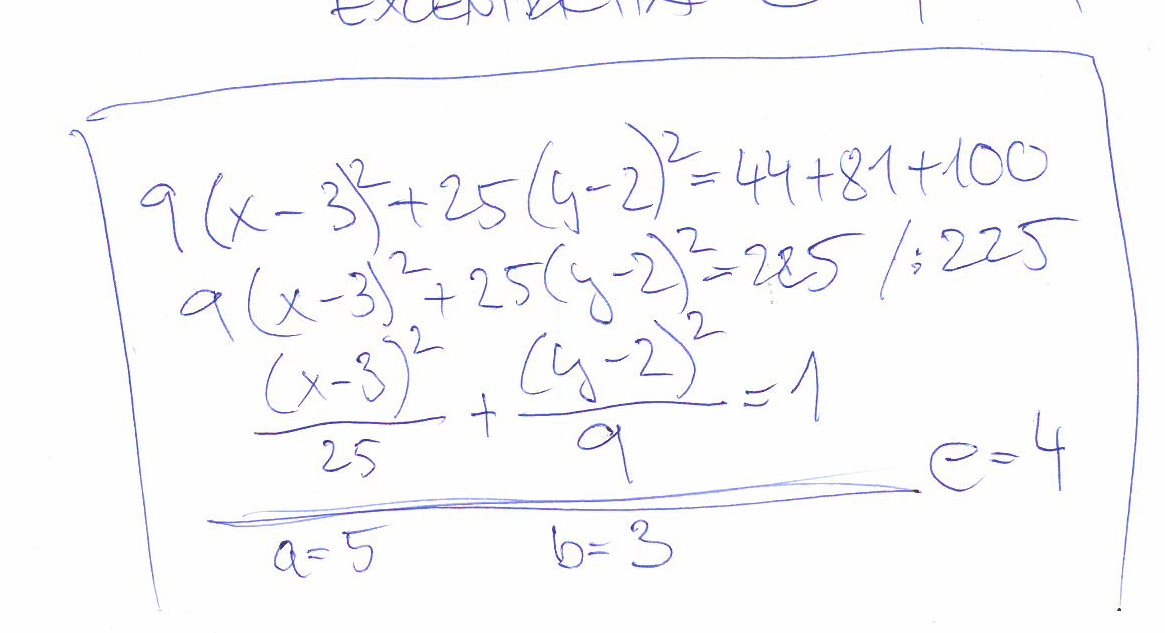 9(x-3)²+25(y-2)²=44+81+100
9(x-3)²+25(y-2)²=225 /:225
(x-3)²/25 + (y-2)²/9 = 1
e=4
a=5 b=3